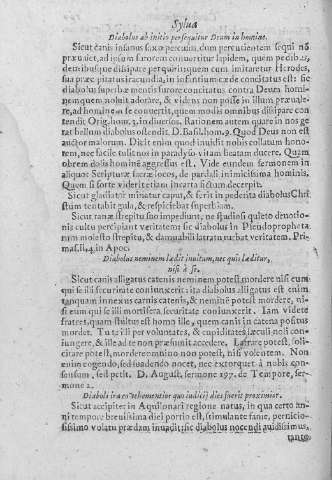 Sylua
Diabolus ab initio persequitur Deum in homine.
Sicut canis insanus saxo percussus, dum percutientem sequi nō
præualet, ad ipsum furorem conuertitur lapidem, quem pedibus,
dentibusque dissipare perquirit
sua præ pituitas iracundia, in infontium cæde concitatus est: sic
diabolus superbæ mentis furore concitatus contra Deum homi
nem quem noluit adorare, & videns non posse in illum præuale-
re, ad hominem se conuertit, quem modis omnibus dissipare con
tendit Orig. hom. 3. in diuersos. Rationem autem quare in nos ge
rat bellum diabolus ostendit. D. Basil. hom. 9. Quod Deus non est
auctor malorum. Dicit enim quod inuidit nobis collatum hono-
rem, nec facile tulit nos in paradyso vitam beatam ducere. Quam
obrem dolis hominē aggressus est. Vide eundem sermonem in
aliquot Scripturæ sacræ locos, de pardali inimicissima hominis,
Quem si forte viderit etiam in carta fictum decerpit.
Sicut gladiator minatur caput, & ferit in pede ita diabolus Chri
stum tentabit gula, & respiciebat superbiam.
Sicut ranæ strepitu suo impediunt, ne studiosi quieto deuotio-
nis cultu percipiant veritatem: sic diabolus in Pseudopropheta
rum molesto strepitu, & damnabili latratu turbat veritatem. Pri-
mas, li. 4. in Apoc.
Diabolus neminem lædit inuitum, nec quis læditur,
nisi à se.
Sicut canis alligatus catenis neminem potest mordere nisi eum
qui se illi securitate coniunxerit: ita diabolus alligatus est enim
tanquam innexus canis catenis, & neminē potest mordere, ni-
si eum qui se illi mortifera securitate coniunxerit. Iam videte
fratres, quam stultus est homo ille, quem canis in catena positus
mordet. Tu te illi per voluntates, & cupiditates sæculi noli con-
iungere, & ille ad te non præsumit accedere. Latrare potest, solli-
citare potest, mordere omnino non potest, nisi volentem. Non
enim cogendo, sed suadendo nocet, nec extorquet à nobis con-
sensum, sed petit. D. August. sermone 197. de Tempore, ser-
mone 2.
Diaboli ira eo vehementior quo iudicij dies fuerit proximior.
Sicut accipiter in Aquilonari regione natus, in qua certo an-
ni tempore breuissima diei portio est, stimulante fame, pernicio-
sissimo volatu prædam inuadit; sic diabolus nocendi auidissimus,
tanto